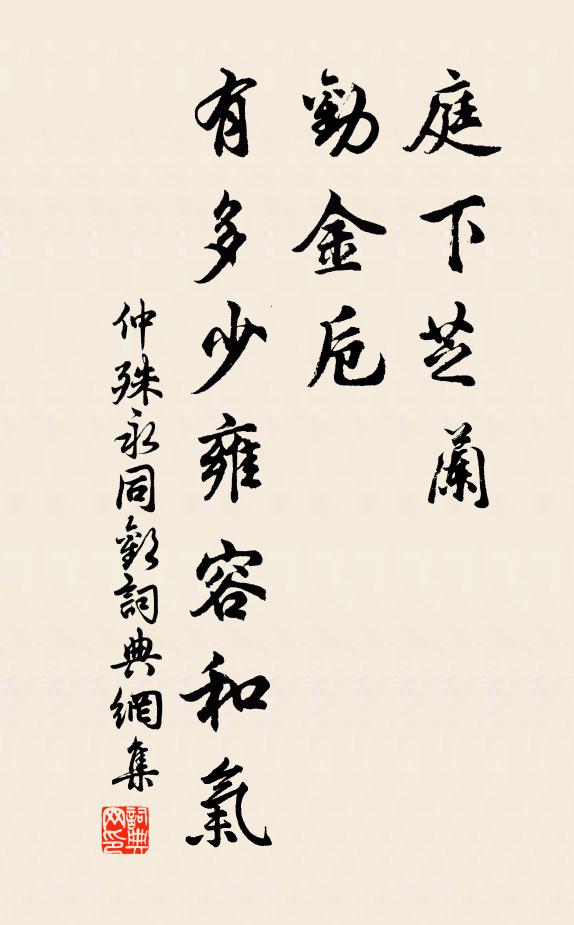 庭下芝蘭
勸金卮
有多少雍容和氣
仲殊永同歡詞典網集
詞典网印